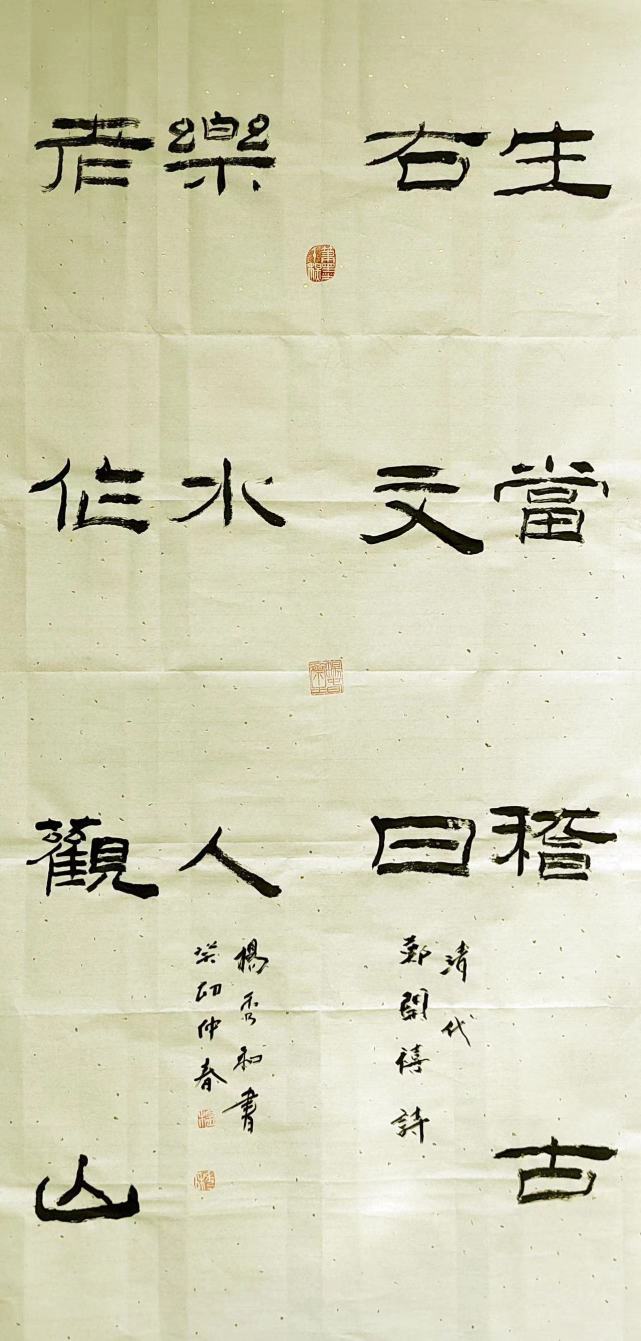 生當稽古
右文日
清代
鄭開禧詩
老作觀山
樂水人
楊秀和書
癸卯仲春